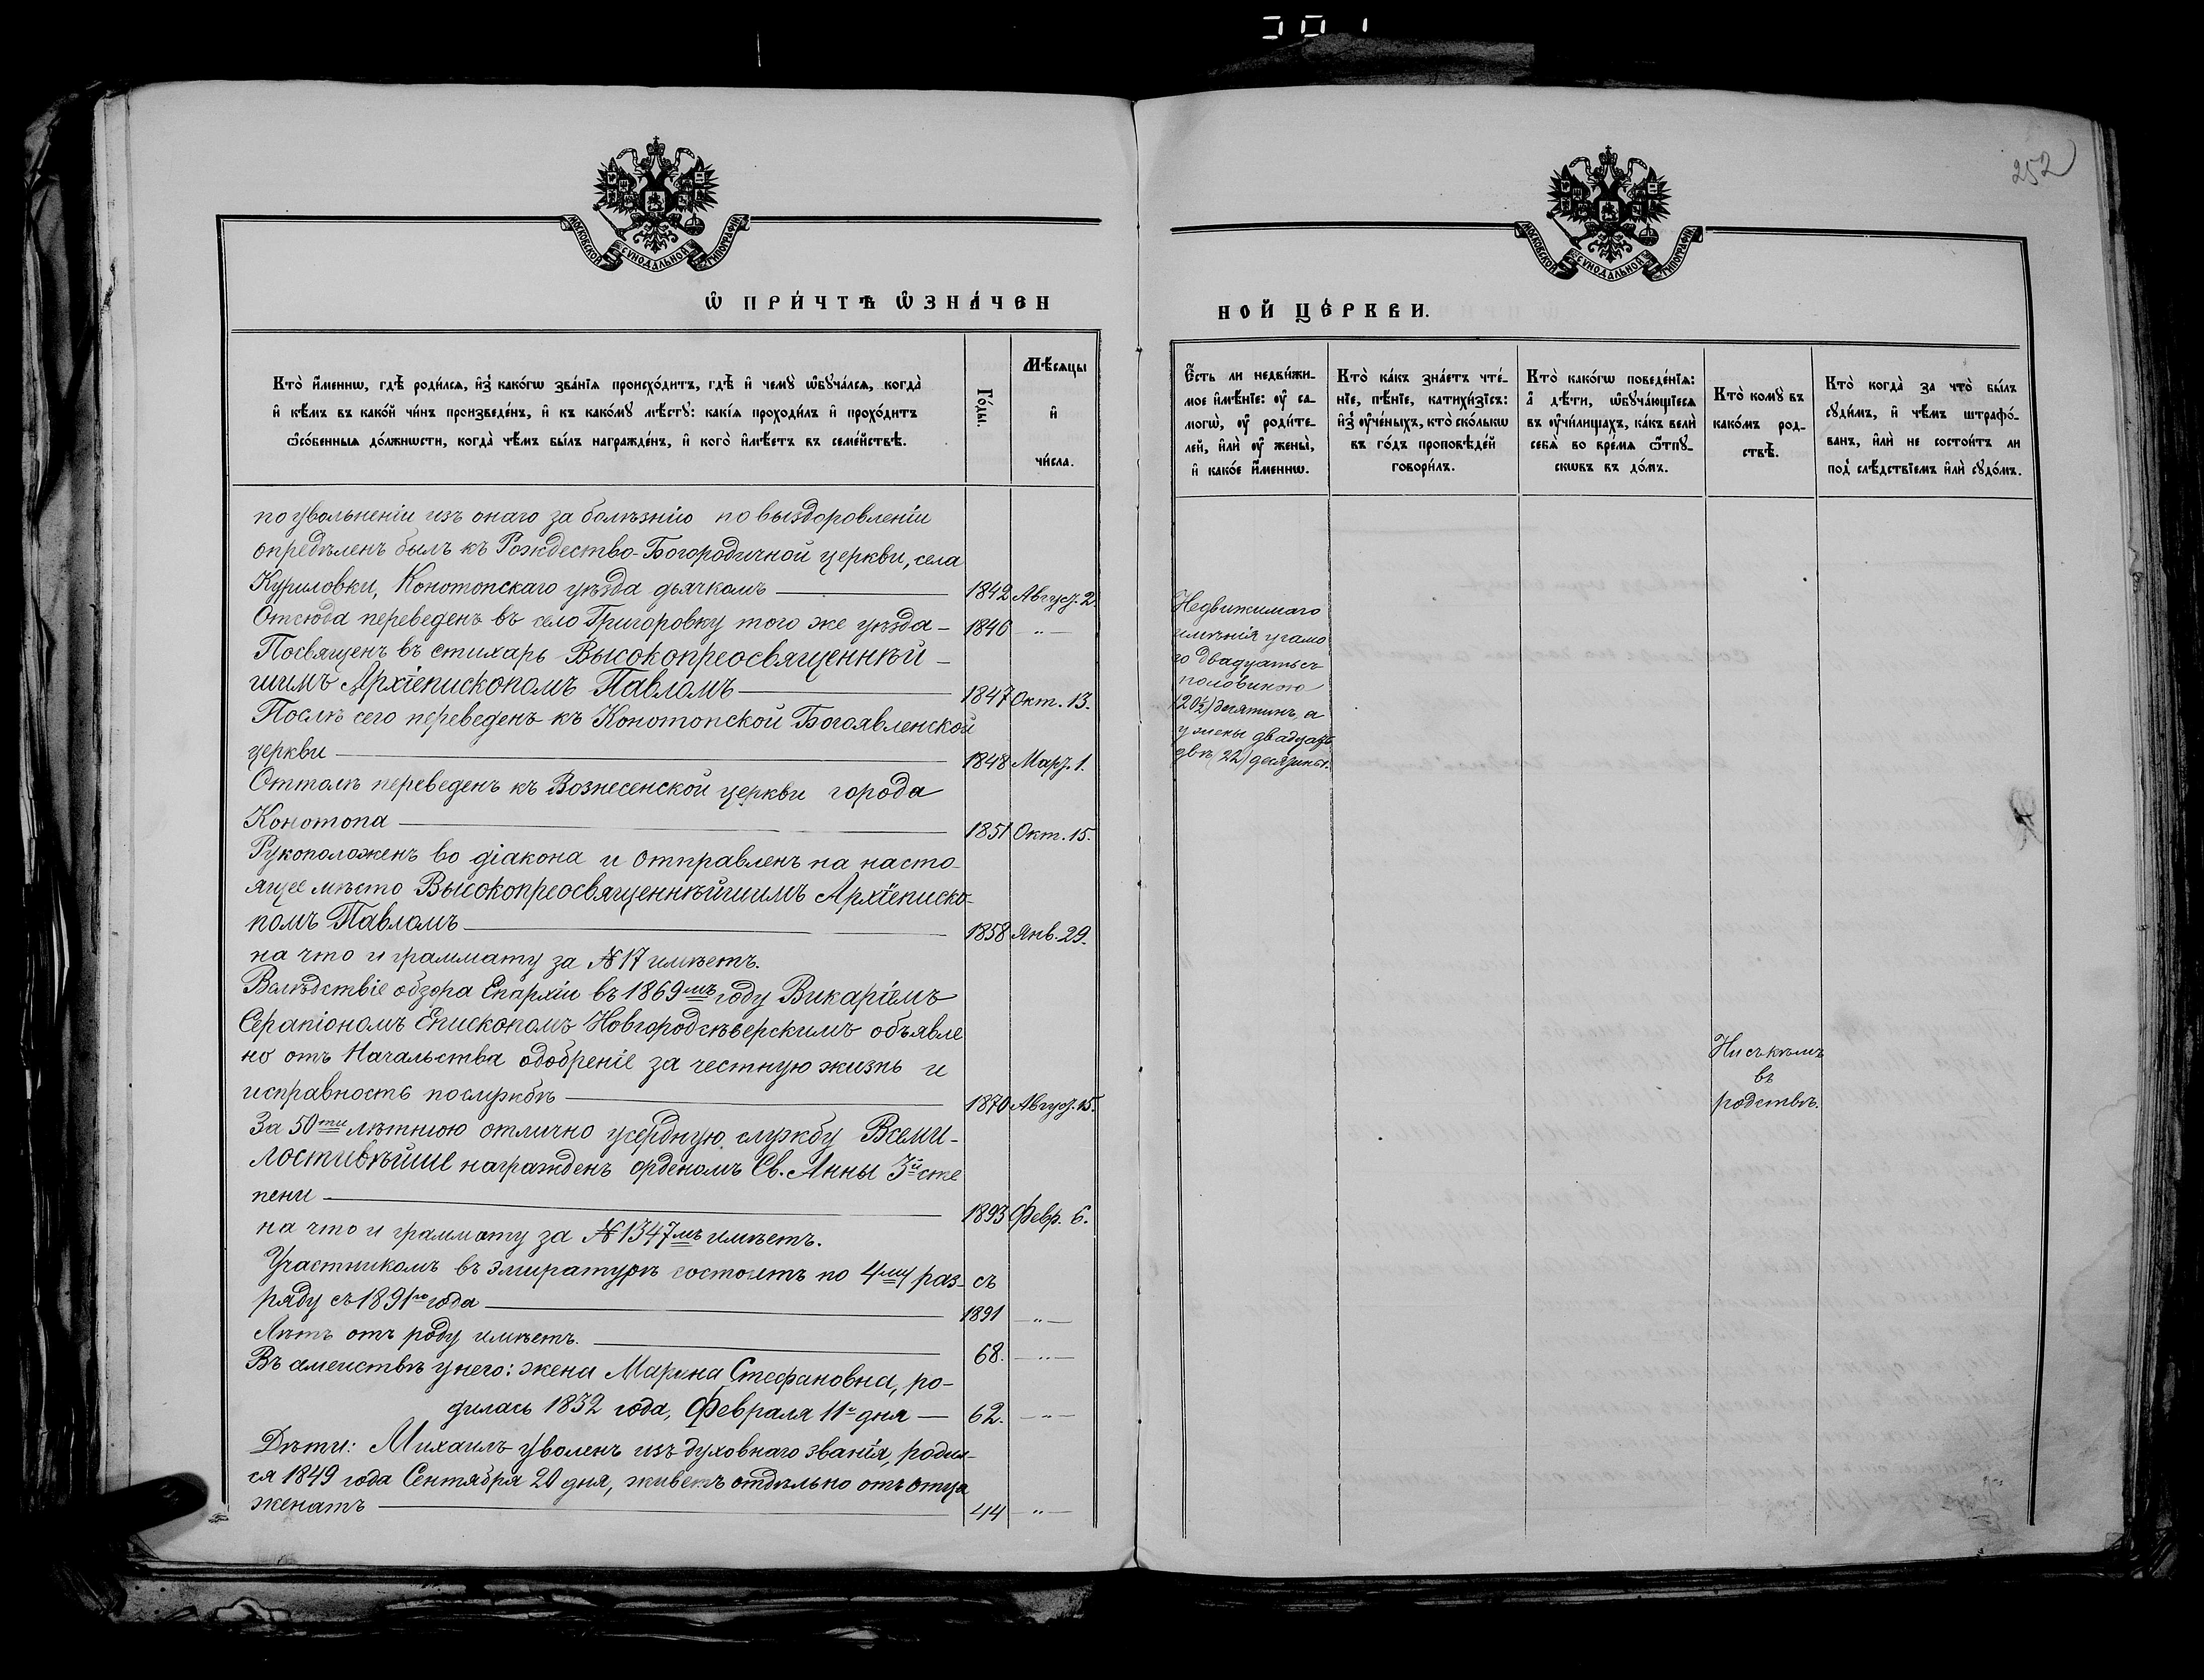 252
МОСКОВСКОЙ СѴНОДАЛЬНОЙ ТИПОГРАФІИ
МОСКОВСКОЙ СѴНОДАЛЬНОЙ ТИПОГРАФІИ
Ѡ ПРИ́ЧТѢ ѠЗНА́ЧЕН
НОЙ ЦЕ́РКВИ.
Кто̀ и҆́меннѡ, гдѣ̀ роди́лсѧ, и҆з̾ како́гѡ зва́нїѧ происхо́дитъ, гдѣ̀ и҆ чемꙋ̀ ѡ҆бꙋча́лсѧ, когда̀
и҆ кѣ́мъ въ како́й чи́нъ произведе́нъ, и҆ къ како́мꙋ мѣ́стꙋ: какі́ѧ проходи́лъ и҆ прохо́дитъ
ѻ҆со́бенныѧ до́лжнѡсти, когда̀ чѣ́мъ бы́лъ награжде́нъ, и҆ кого̀ и҆мѣ́етъ въ семе́йствѣ.
Годы.
Мѣ́сяцы
и҆
чи́сла.
Е҆́сть ли недви́жи-
мое и҆мѣ́нїе: ᲂу҆ са-
могѡ̀, ᲂу҆ роди́те-
лей, и҆лѝ ᲂу҆ жены̀,
и҆ како́е и҆́меннѡ.
Кто̀ ка́къ зна́етъ чте́-
нїе, пѣ́нїе, катихи́зїсъ:
и҆з̾ ᲂу҆че́ныхъ, кто̀ ско́лькѡ
въ го́дъ проповѣ́дей
говори́лъ.
Кто̀ како́гѡ поведе́нїѧ:
а҆ дѣ́ти, ѡ҆бꙋча́ющїесѧ
въ ᲂу҆чи́лищахъ, ка́къ велѝ
себѧ̀ во вре́мѧ ѿпꙋ-
скѡвъ въ до́мъ.
Кто̀ комꙋ̀ въ
како́мъ род-
ствѣ̀.
Кто̀ когда̀ за что̀ бы́лъ
сꙋди́мъ, и҆ чѣ́мъ штрафо́-
ванъ, и҆лѝ не состои́тъ ли
под̾ слѣ́дствїемъ и҆лѝ сꙋдо́мъ.
по увольненіи изъ онаго за болѣзнію по выздоровленіи
опредѣленъ былъ къ Рождество-Богородичной церкви, села
Куриловки, Конотопскаго уѣзда дьячкомъ — 1842 Август. 2.
Отсюда переведенъ въ село Григоровку того же уѣзда — 1846 — „ —
Посвященъ въ стихарь Высокопреосвященнѣй-
шимъ Архіепископомъ Павломъ — 1847 Окт. 13.
Послѣ сего переведенъ къ Конотопской Богоявленской
церкви — 1848 Март. 1.
Оттолѣ переведенъ къ Вознесенской церкви города
Конотопа — 1851 Окт. 15.
Рукоположенъ во діакона и отправленъ на насто-
ящее мѣсто Высокопреосвященнѣйшимъ Архіеписко-
помъ Павломъ — 1858 Янв. 29.
на что и граммату за № 17 имѣетъ.
Вслѣдствіе обзора Епархіи въ 1869мъ году Викаріемъ
Серапіономъ Епископомъ Новгородсѣверскимъ объявле
но отъ Начальства одобреніе за честную жизнь и
исправность по службѣ — 1870 Август. 15.
За 50ти лѣтнюю отлично усердную службу Всеми-
лостивѣйше награжденъ орденомъ Св. Анны 3й сте
пени — 1893 Февр. 6.
на что и граммату за № 1347мъ имѣетъ.
Участникомъ въ эмиратурѣ состоитъ по 4му раз- съ
ряду съ 1891го года — 1891 — „ —
Лѣтъ отъ роду имѣетъ. — 68. — „ —
Въ семействѣ у него: жена Марина Стефановна, ро-
дилась 1832 года, Февраля 11го дня — 62. — „ —
Дѣти: Михаилъ уволенъ изъ духовнаго званія, родил-
ся 1849 года Сентября 20 дня, живетъ отдѣльно отъ отца
женатъ — 44 — „ —
Недвижимаго
имѣнія у само
го двадцать съ
половиною
(20½) десятинъ, а
у жены двадцать
двѣ (22) десятины.
Ни съ кѣмъ
въ
родствѣ.